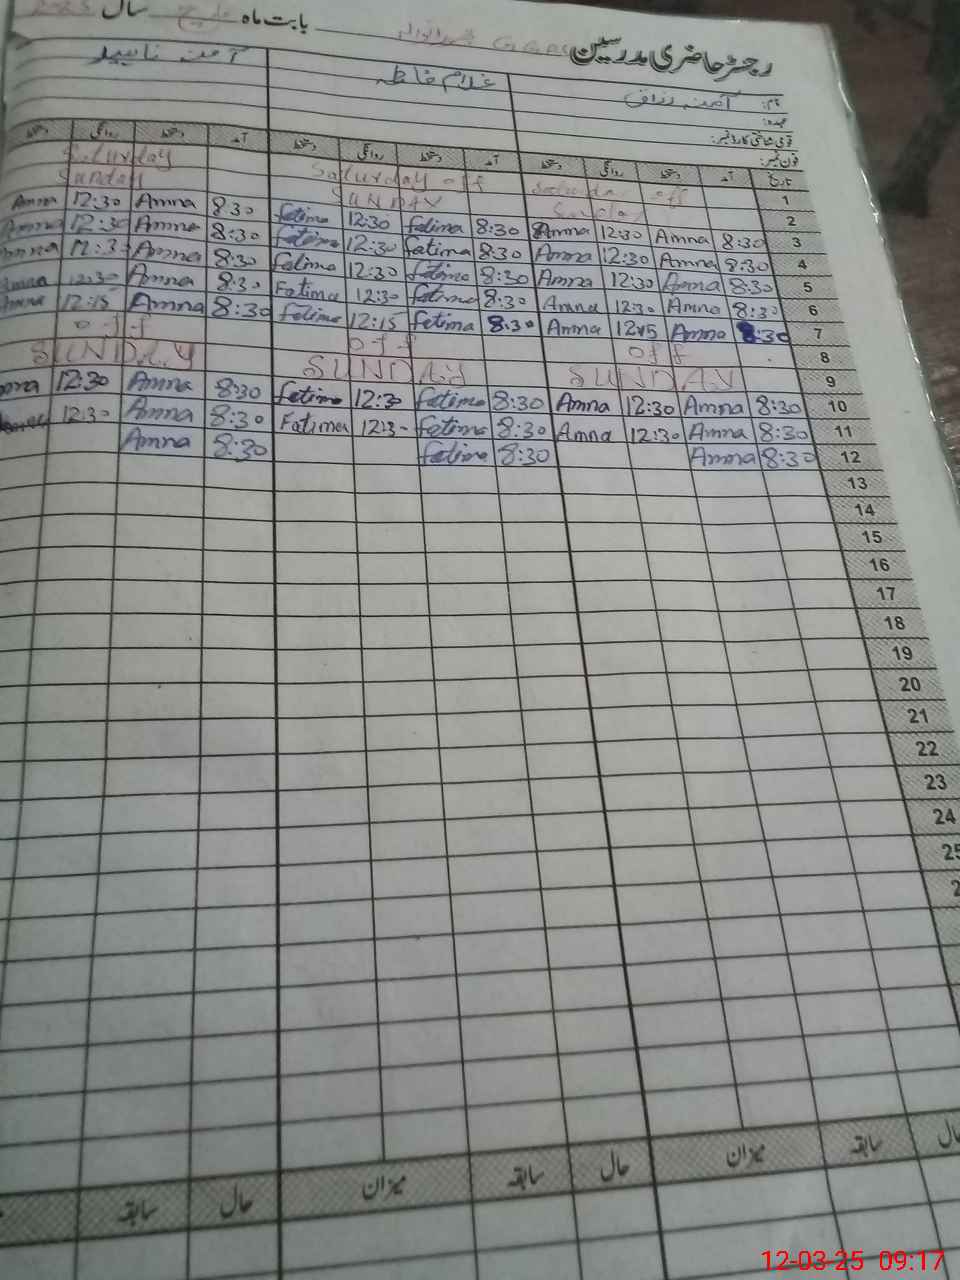 رجسٹر حاضری مدرسین بابت ماہ مارچ سال 2025
نام: آمنہ رزاق غلام فاطمہ آمنہ
عہدہ:
قومی شناختی کارڈ نمبر:
فون نمبر:
تاریخ آمد دستخط روانگی دستخط آمد دستخط روانگی دستخط آمد دستخط روانگی دستخط
Saturday Saturday off Saturday off 1
Sunday SUNDAY Sunday 2
Amna 12:30 Amna 8:30 fatima 12:30 fatima 8:30 Amna 12:30 Amna 8:30 3
Amna 12:30 Amna 8:30 fatima 12:30 fatima 8:30 Amna 12:30 Amna 8:30 4
Amna 12:3 Amna 8:30 fatima 12:30 fatima 8:30 Amna 12:30 Amna 8:30 5
Amna 12:30 Amna 8:30 Fatima 12:30 fatima 8:30 Amna 12:30 Amna 8:30 6
Amna 12:15 Amna 8:30 fatima 12:15 fatima 8:30 Amna 1215 Amna 8:30 7
off off off 8
SUNDAY SUNDAY SUNDAY 9
mna 12:30 Amna 8:30 fatima 12:30 fatima 8:30 Amna 12:30 Amna 8:30 10
12:30 Amna 8:30 Fatima 12:3- fatima 8:30 Amna 12:30 Amna 8:30 11
Amna 8:30 fatima 8:30 Amna 8:30 12
13
14
15
16
17
18
19
20
21
22
23
24
25
2
حال سابقہ میزان حال سابقہ میزان حال سابقہ
12-03-25 09:17